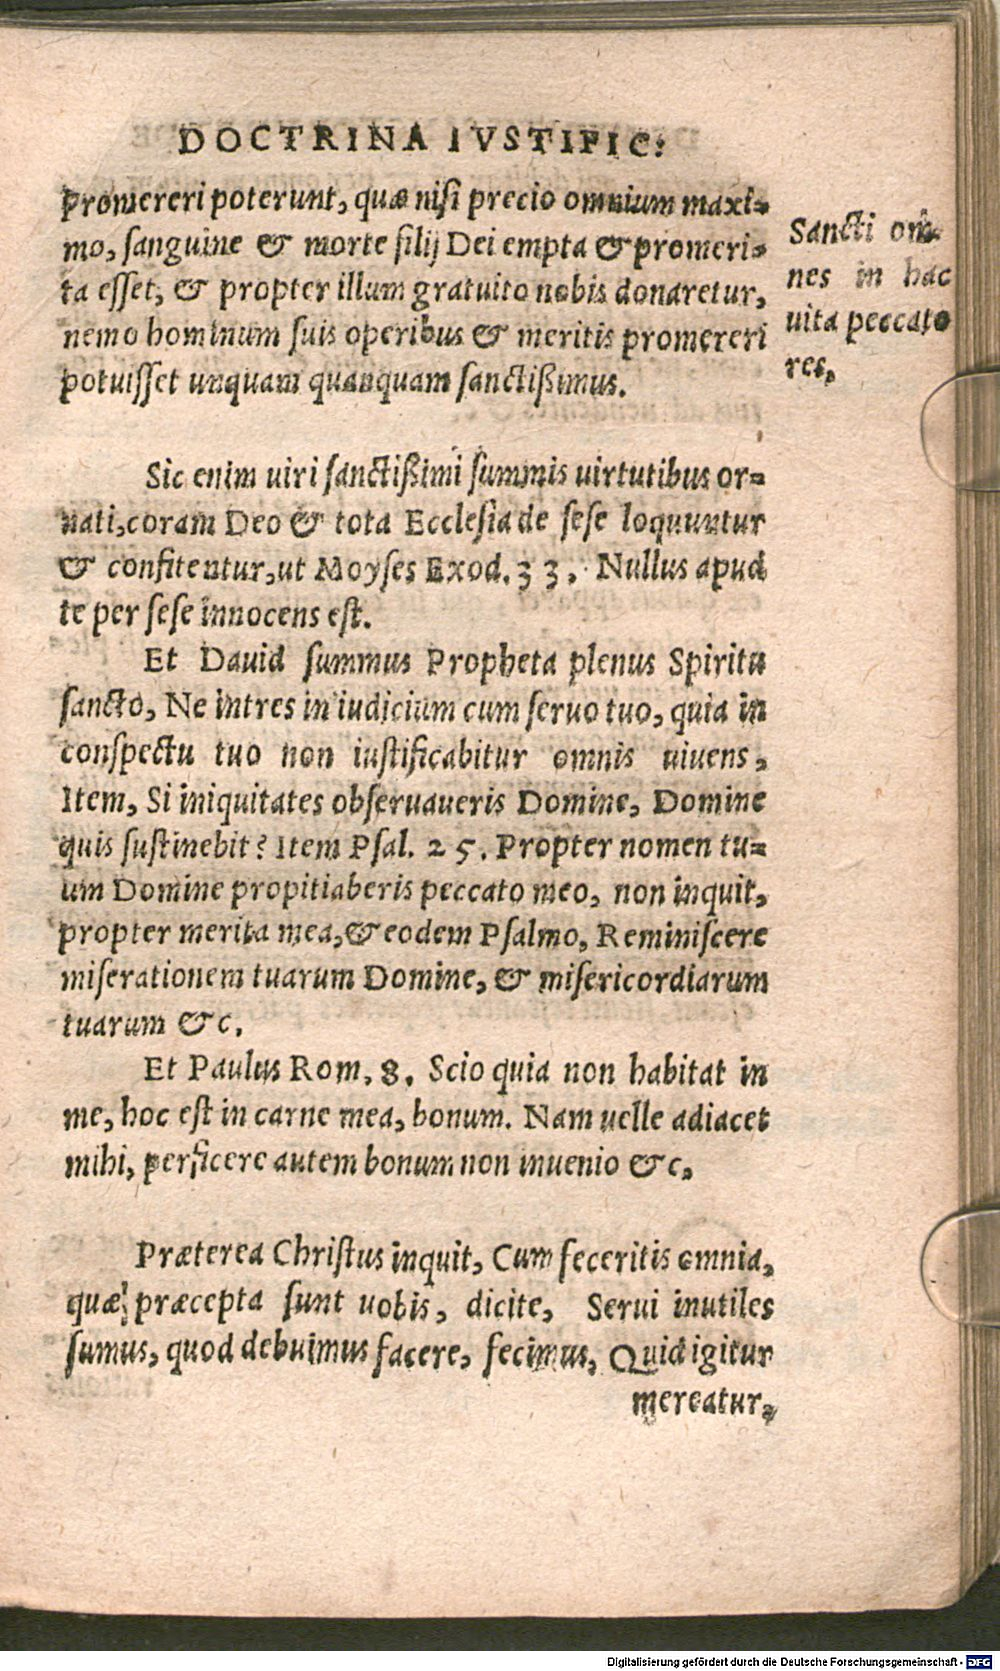 DOCTRINA IVSTIFIC:
promereri poterunt, quæ nisi precio omnium maxi=
mo, sanguine & morte filij Dei empta & promeri=
ta esset, & propter illum gratuito nobis donaretur,
nemo hominum suis operibus & meritis promereri
potuisset unquam quanquam sanctißimus.
Sancti om=
nes in hac
uita peccato
res.
Sic enim uiri sanctißimi summis uirtutibus or=
nati, coram Deo & tota Ecclesia de sese loquuntur
& confitentur, ut Moyses Exod. 33. Nullus apud
te per sese innocens est.
Et Dauid summus Propheta plenus Spiritu
sancto, Ne intres in iudicium cum seruo tuo, quia in
conspectu tuo non iustificabitur omnis uiuens,
Item, Si iniquitates obseruaueris Domine, Domine
quis sustinebit? Item Psal. 25. Propter nomen tu=
um Domine propitiaberis peccato meo, non inquit,
propter merita mea, & eodem Psalmo, Reminiscere
miserationem tuarum Domine, & misericordiarum
tuarum &c.
Et Paulus Rom. 8. Scio quia non habitat in
me, hoc est in carne mea, bonum. Nam uelle adiacet
mihi, perficere autem bonum non inuenio &c.
Præterea Christus inquit, Cum feceritis omnia,
quæ præcepta sunt uobis, dicite, Serui inutiles
sumus, quod debuimus facere, fecimus, Quid igitur
mereatur,
Digitalisierung gefördert durch die Deutsche Forschungsgemeinschaft - DFG